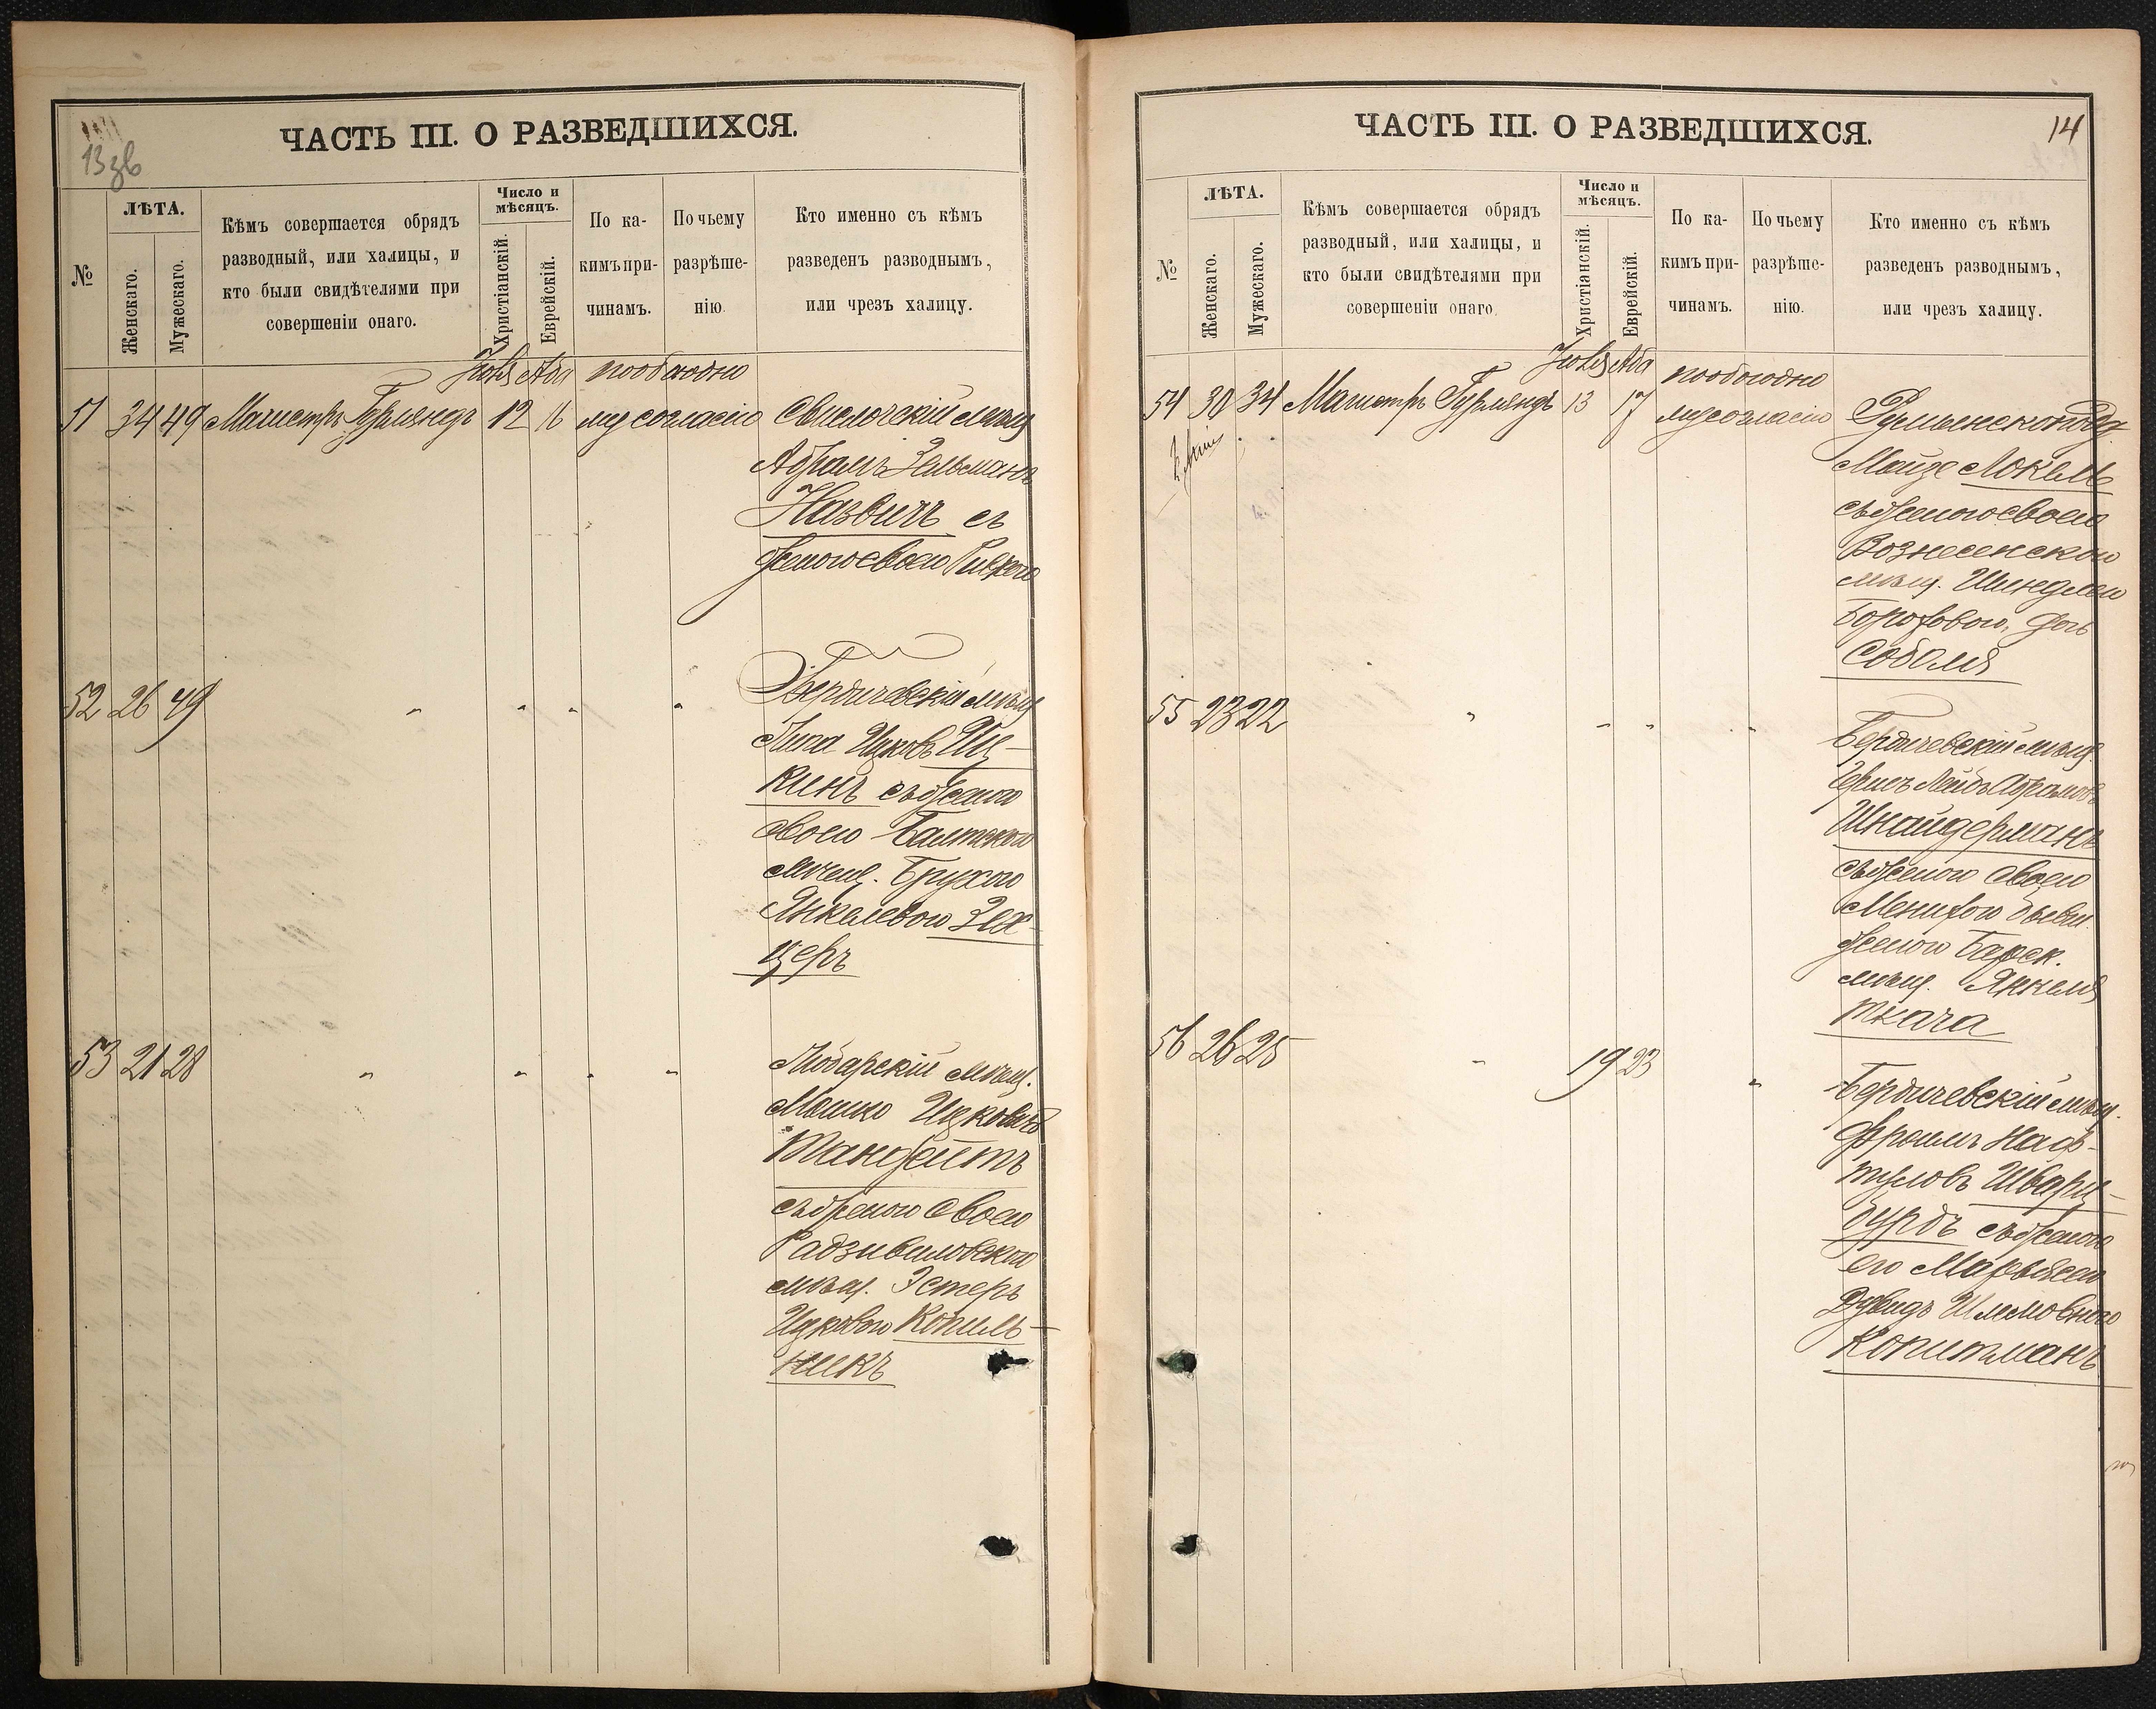 13 зв
ЧАСТЬ III. О РАЗВЕДШИХСЯ.
№
ЛѢТА.
Женскаго.
Мужескаго.
Кѣмъ совершается обрядъ
разводный, или халицы, и
кто были свидѣтелями при
совершеніи онаго.
Число и
мѣсяцъ.
Христіанскій.
Еврейскій.
По ка-
кимъ при-
чинамъ.
По чьему
разрѣше-
нію.
Кто именно съ кѣмъ
разведенъ разводнымъ,
или чрезъ халицу.
Юля Аба пообоюдно
51 34 49 Магистръ Гурляндъ 12 16 му согласію Свислочскій мѣщ
Абрамъ Зельманъ
Назвичъ съ
женою своею Ривкою
52 26 49 " " " " Бердичевскій мѣщ
Ицковъ Иц-
кинъ съ женою
своею Балтскою
мѣщ. Брухою
Янкелевою Зех-
церъ
53 21 28 " " " " Любарскій мѣщ.
Мошко Ицковъ
Манжейтъ
съ женою своею
Радзивиловскою
мѣщ. Эстеръ
Ицковою Копиль-
никъ
ЧАСТЬ III. О РАЗВЕДШИХСЯ.
14
№
ЛѢТА.
Женскаго.
Мужескаго.
Кѣмъ совершается обрядъ
разводный, или халицы, и
кто были свидѣтелями при
совершеніи онаго.
Число и
мѣсяцъ.
Христіанскій.
Еврейскій.
По ка-
кимъ при-
чинамъ.
По чьему
разрѣше-
нію.
Кто именно съ кѣмъ
разведенъ разводнымъ,
или чрезъ халицу.
Юля Аба
пообоюдно
54 30 34 Магистръ Гурляндъ 13 17 му согласію
Локель
съ женою своею
Вознесенскою
мѣщ. Шейндлею
Борозовою, дочь
Соболя
55 23 22 " " " " Бердичевскій мѣщ.
Гершъ Лейбъ Абрамовъ
Шнайдерманъ
съ женою своею
бывш.
женою Барск.
мѣщ. Янкеля
Ткача
56 26 25 " 19 23 " Бердичевскій мѣщ.
Фроимъ Наф-
туловъ Шварц-
бурдъ съ женою
его
Шлемовною
Копитманъ